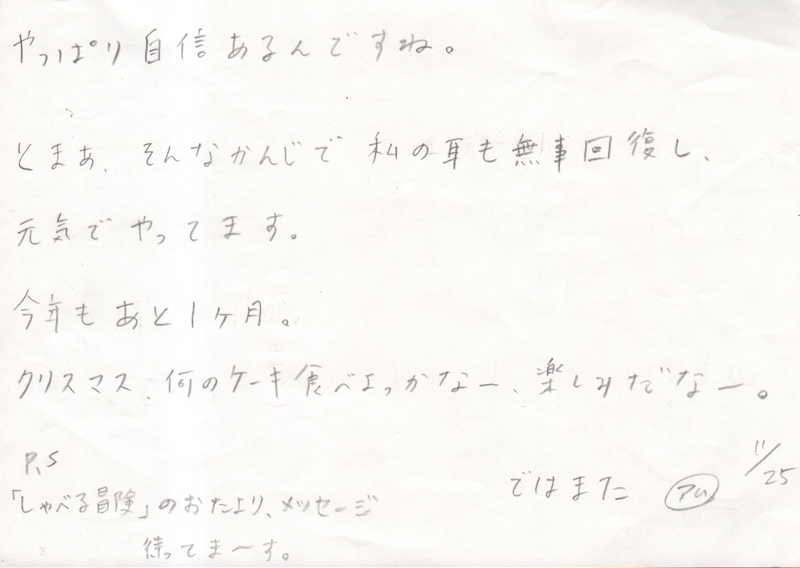 やっぱり自信あるんですね。
とまぁ、そんなかんじで私の耳も無事回復し、
元気でやってます。
今年もあと1ヶ月。
クリスマス、何のケーキ食べよっかなー、楽しみだなー。
P.S
「しゃべる冒険」のおたより、メッセージ
待ってまーす。
ではまた
11/25